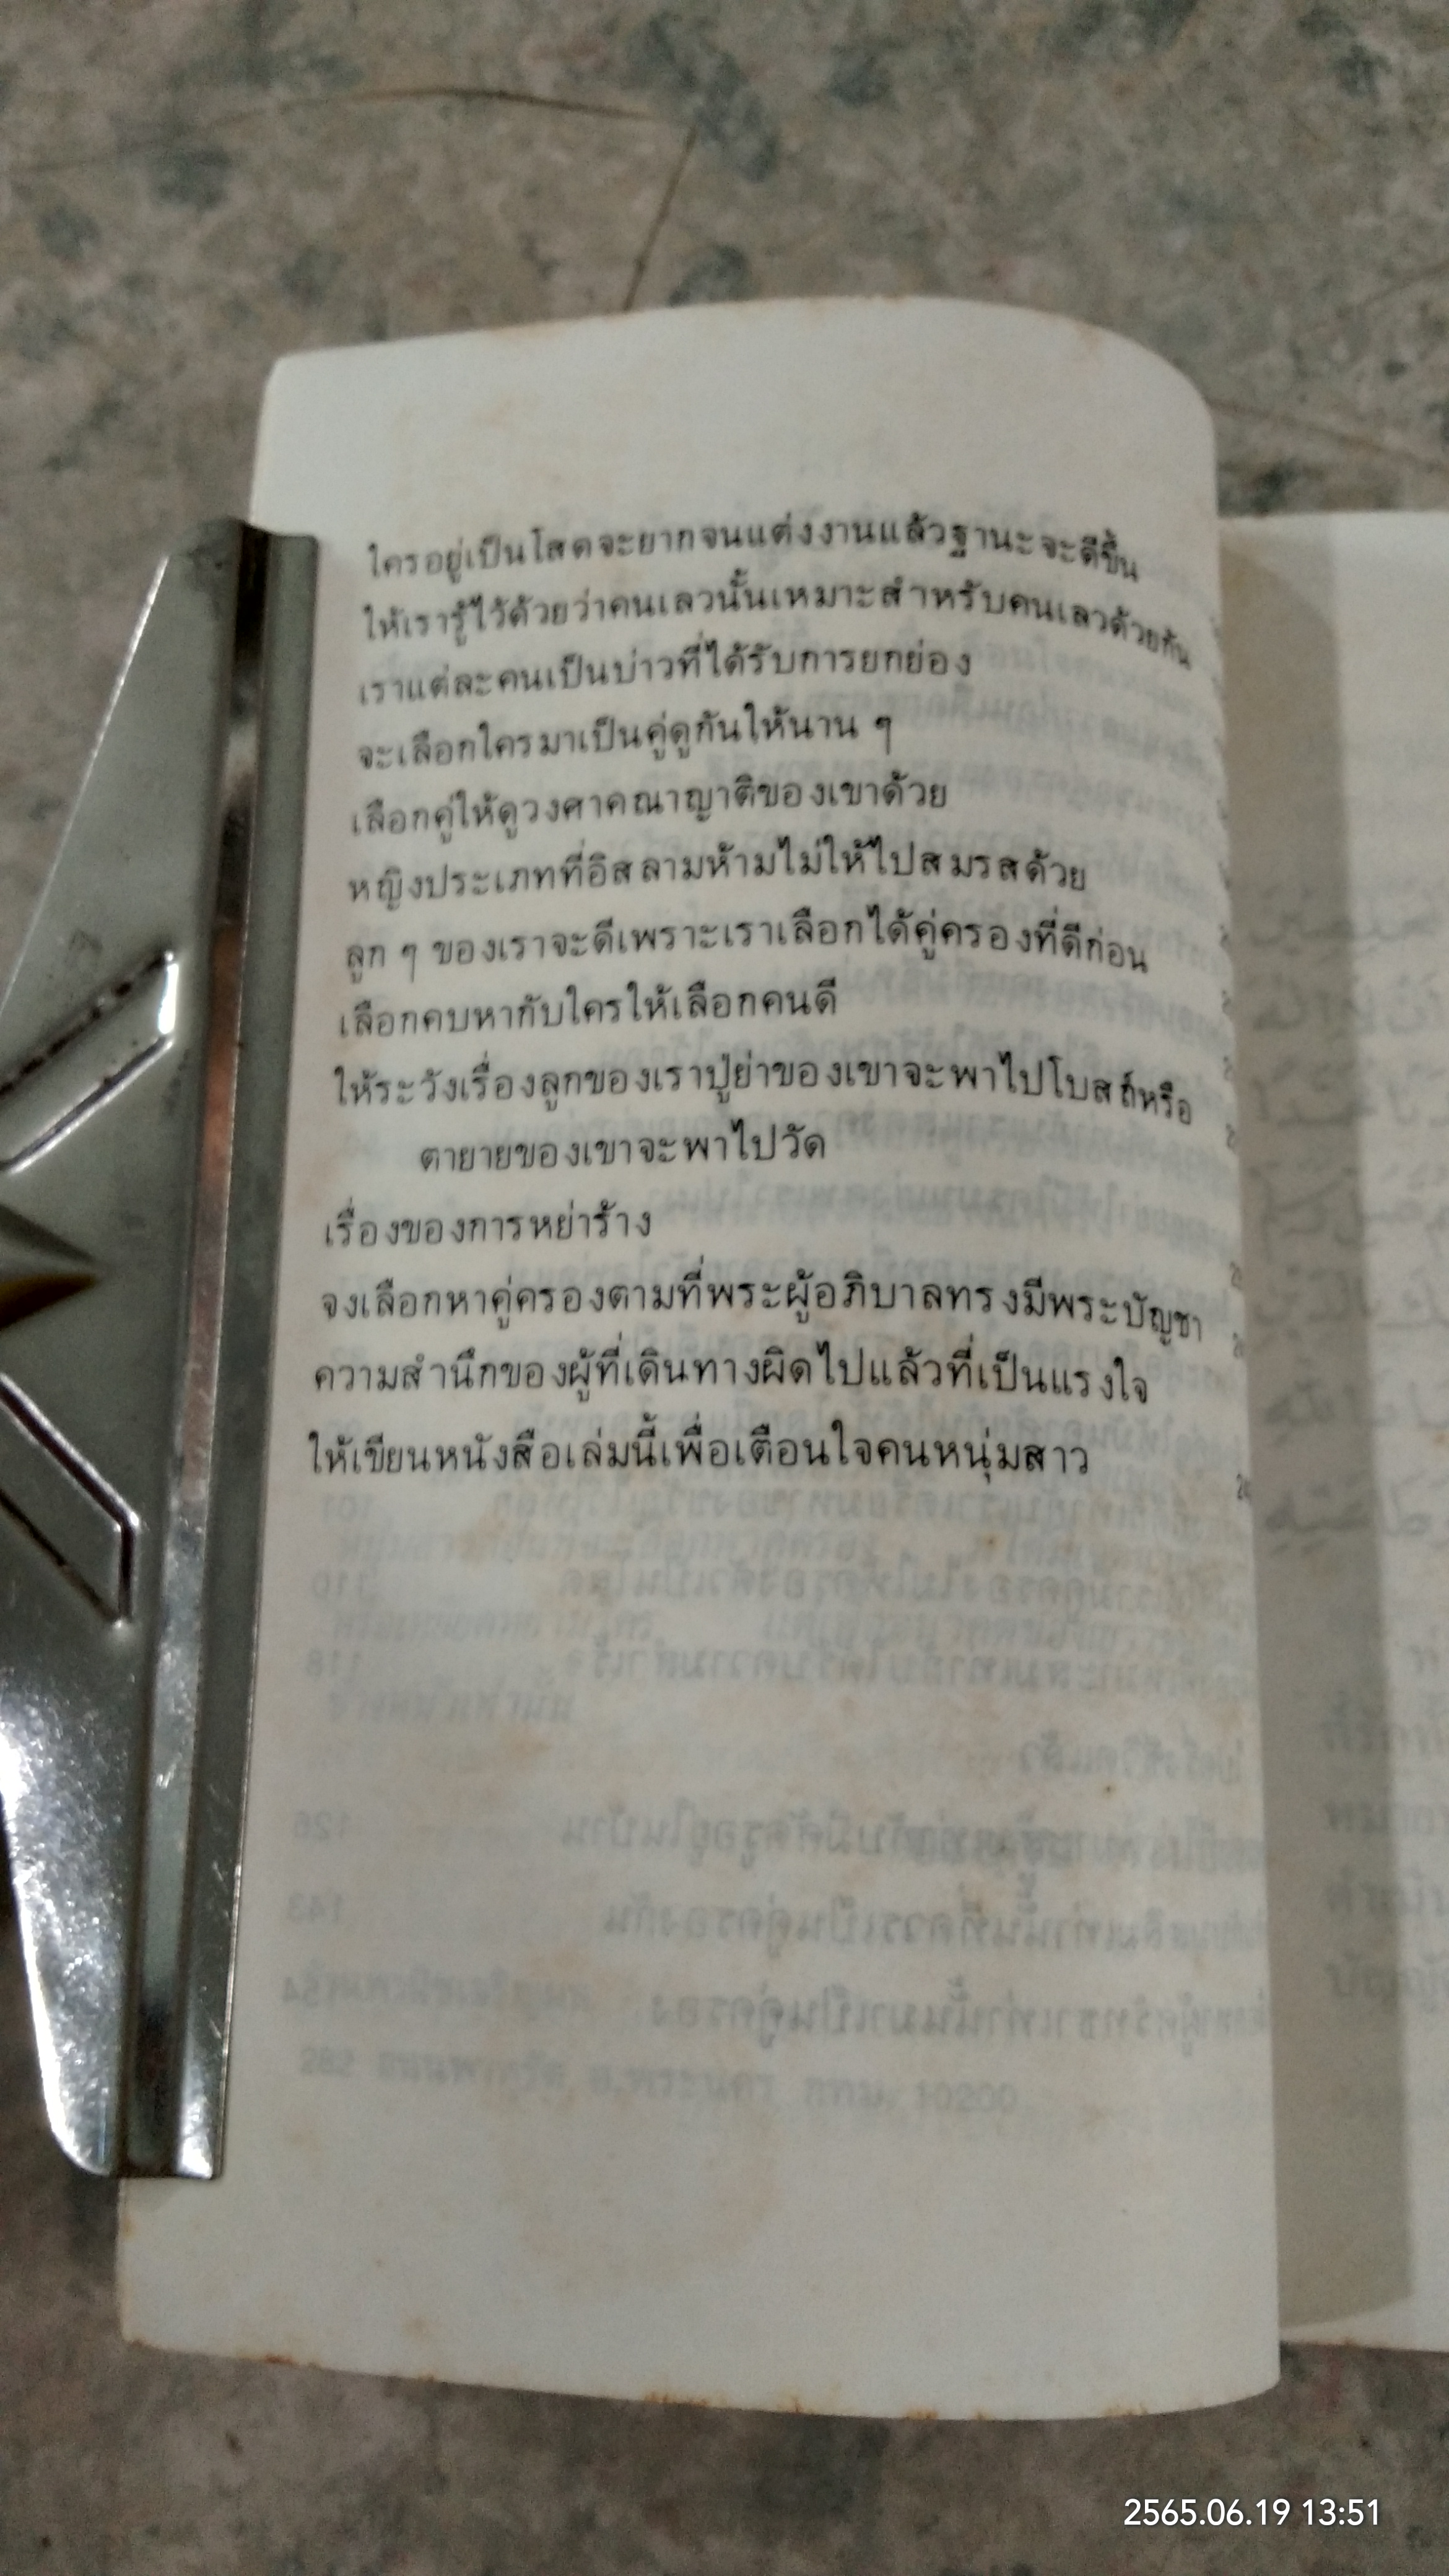 ใครอยู่เป็นโสดจะยากจนแต่งงานแล้วฐานะจะดีขึ้น
ให้เรารู้ไว้ด้วยว่าคนเลวนั้นเหมาะสำหรับคนเลวด้วยกัน
เราแต่ละคนเป็นบ่าวที่ได้รับการยกย่อง
จะเลือกใครมาเป็นคู่ดูกันให้นาน ๆ
เลือกคู่ให้ดูวงศาคณาญาติของเขาด้วย
หญิงประเภทที่อิสลามห้ามไม่ให้ไปสมรสด้วย
ลูก ๆ ของเราจะดีเพราะเราเลือกได้คู่ครองที่ดีก่อน
เลือกคบหากับใครให้เลือกคนดี
ให้ระวังเรื่องลูกของเราปู่ย่าของเขาจะพาไปโบสถ์หรือ
ตายายของเขาจะพาไปวัด
เรื่องของการหย่าร้าง
จงเลือกหาคู่ครองตามที่พระผู้อภิบาลทรงมีพระบัญชา
ความสำนึกของผู้ที่เดินทางผิดไปแล้วที่เป็นแรงใจ
ให้เขียนหนังสือเล่มนี้เพื่อเตือนใจคนหนุ่มสาว
2565.06.19 13:51